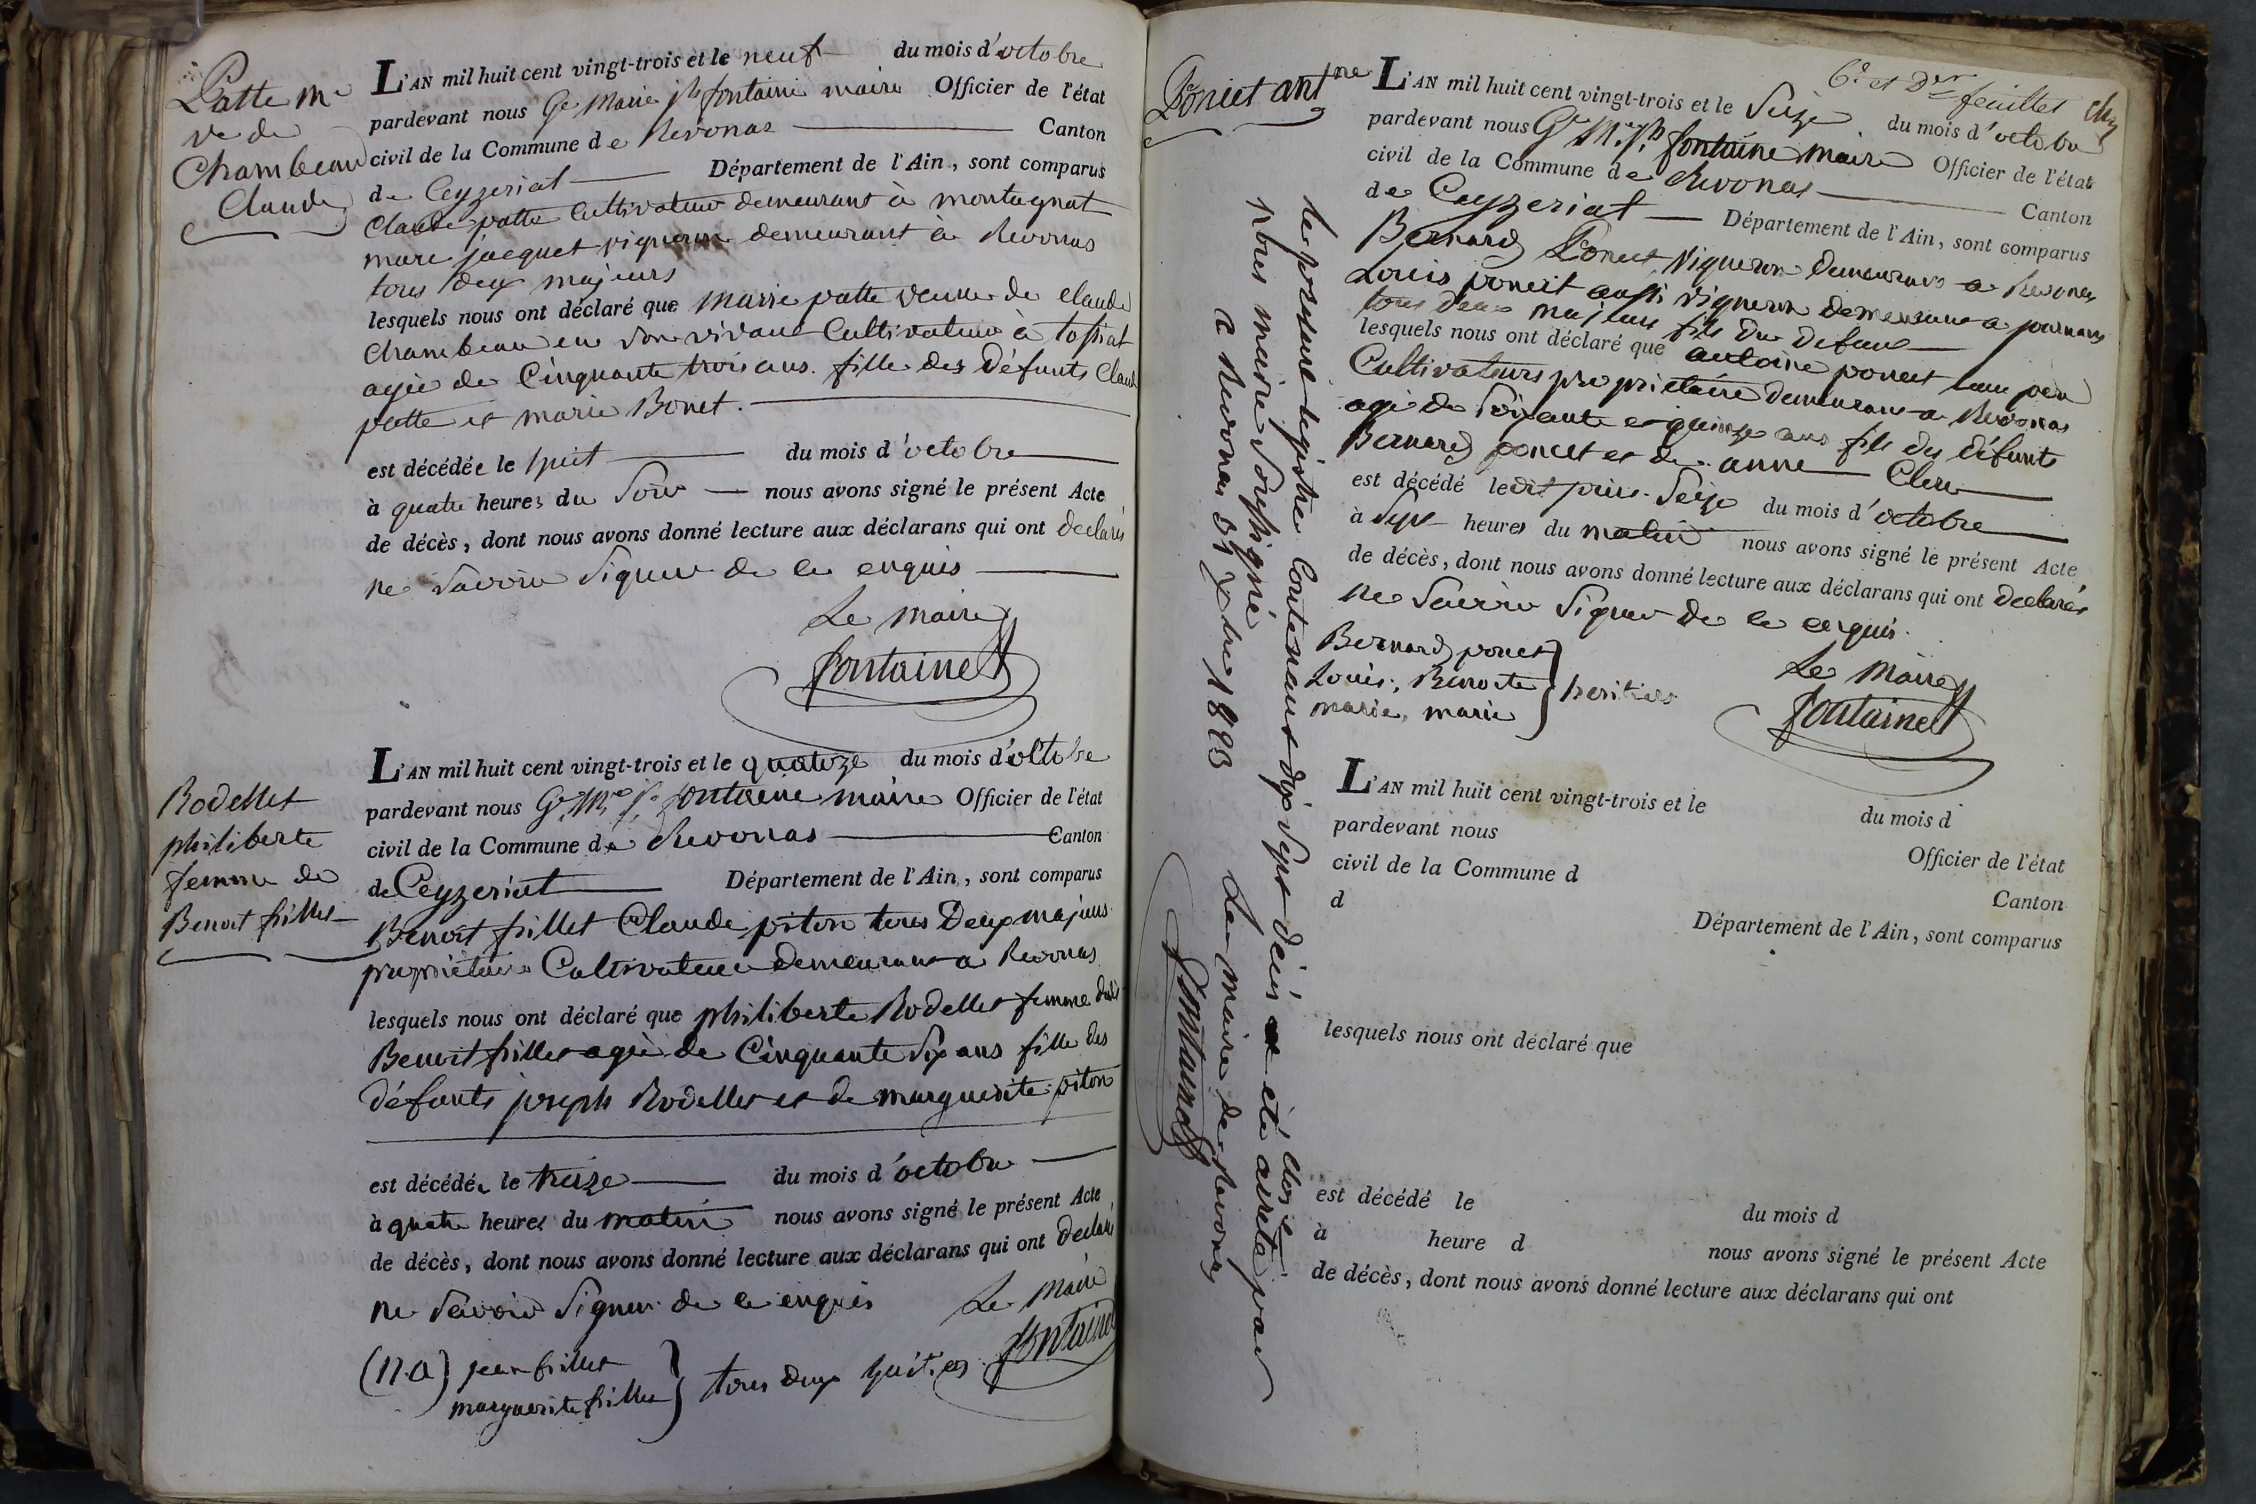 Patte Me
ve de
Chambeau
Claude
L'AN mil huit cent vingt-trois et le neuf du mois d'octobre
pardevant nous Ge Marie jh fontaine maire Officier de l'état
civil de la Commune de Revonas Canton
de Ceyzeriat Département de l'Ain, sont comparus
Claude patte Cultivateur demeurant à montagnat
marc jacquet vigneron demeurant à Revonas
tous deux majeurs
lesquels nous ont déclaré que marie patte veuve de claude
Chambeau en son vivant Cultivateur à tossiat
agée de Cinquante trois ans. fille des défunts Claude
patte et marie Bonet.
est décédée le huit du mois d'octobre
à quatre heures du Soir nous avons signé le présent Acte
de décès, dont nous avons donné lecture aux déclarans qui ont declarés
ne Savoir Signer de ce enquis
Le maire
fontaine
Rodellet
philiberte
femme de
Benoit frillet
L'AN mil huit cent vingt-trois et le quatorze du mois d'octobre
pardevant nous Ge Mie Jh fontaine maire Officier de l'état
civil de la Commune de Revonas Canton
de Ceyzeriat Département de l'Ain, sont comparus
Benoit frillet Claude piton tous Deux majeurs
propriétaires Cultivateurs demeurant a Revonas
lesquels nous ont déclaré que philiberte Rodellet femme dudit
Benoit frillet agée de Cinquante Six ans fille des
défunts joseph Rodellet et de marguerite piton
est décédée le treize du mois d'octobre
à quatre heures du matin nous avons signé le présent Acte
de décès, dont nous avons donné lecture aux déclarans qui ont declaré
ne Savoir Signer de ce enquis
Le Maire
fontaine
(n.a) jean frillet
marguerite frillet } tous deux heritiers
6e et Der feuillet
Poncet antne
L'AN mil huit cent vingt-trois et le Seize du mois d'octobre
pardevant nous Ge M. Jh fontaine maire Officier de l'état
civil de la Commune de Revonas Canton
de Ceyzeriat Département de l'Ain, sont comparus
Bernard Poncet, Vigneron demeurant a Revonas
Louis poncet aussi vigneron demeurant a journans
tous deux majeurs fils du defunt
lesquels nous ont déclaré que antoine poncet leur père
Cultivateur propriétaire demeurant a Revonas
agé de Soixante et quinze ans fils des défunts
Bernard poncet et de anne Clerc
est décédé ledit jour Seize du mois d'octobre
à Sept heures du matin nous avons signé le présent Acte
de décès, dont nous avons donné lecture aux déclarans qui ont declarés
ne Savoir Signer de ce enquis.
Bernard poncet
Louis, Benoite } heritiers
marie, marie
Le Maire
fontaine
Le present registre Contenant dix Sept décès a été clos et arreté par
Nous maire Soussigné
a Revonas 31 Xbre 1823 Le maire de Revonas
fontaine
L'AN mil huit cent vingt-trois et le du mois d
pardevant nous Officier de l'état
civil de la Commune d Canton
d Département de l'Ain, sont comparus
lesquels nous ont déclaré que
est décédé le du mois d
à heure d nous avons signé le présent Acte
de décès, dont nous avons donné lecture aux déclarans qui ont